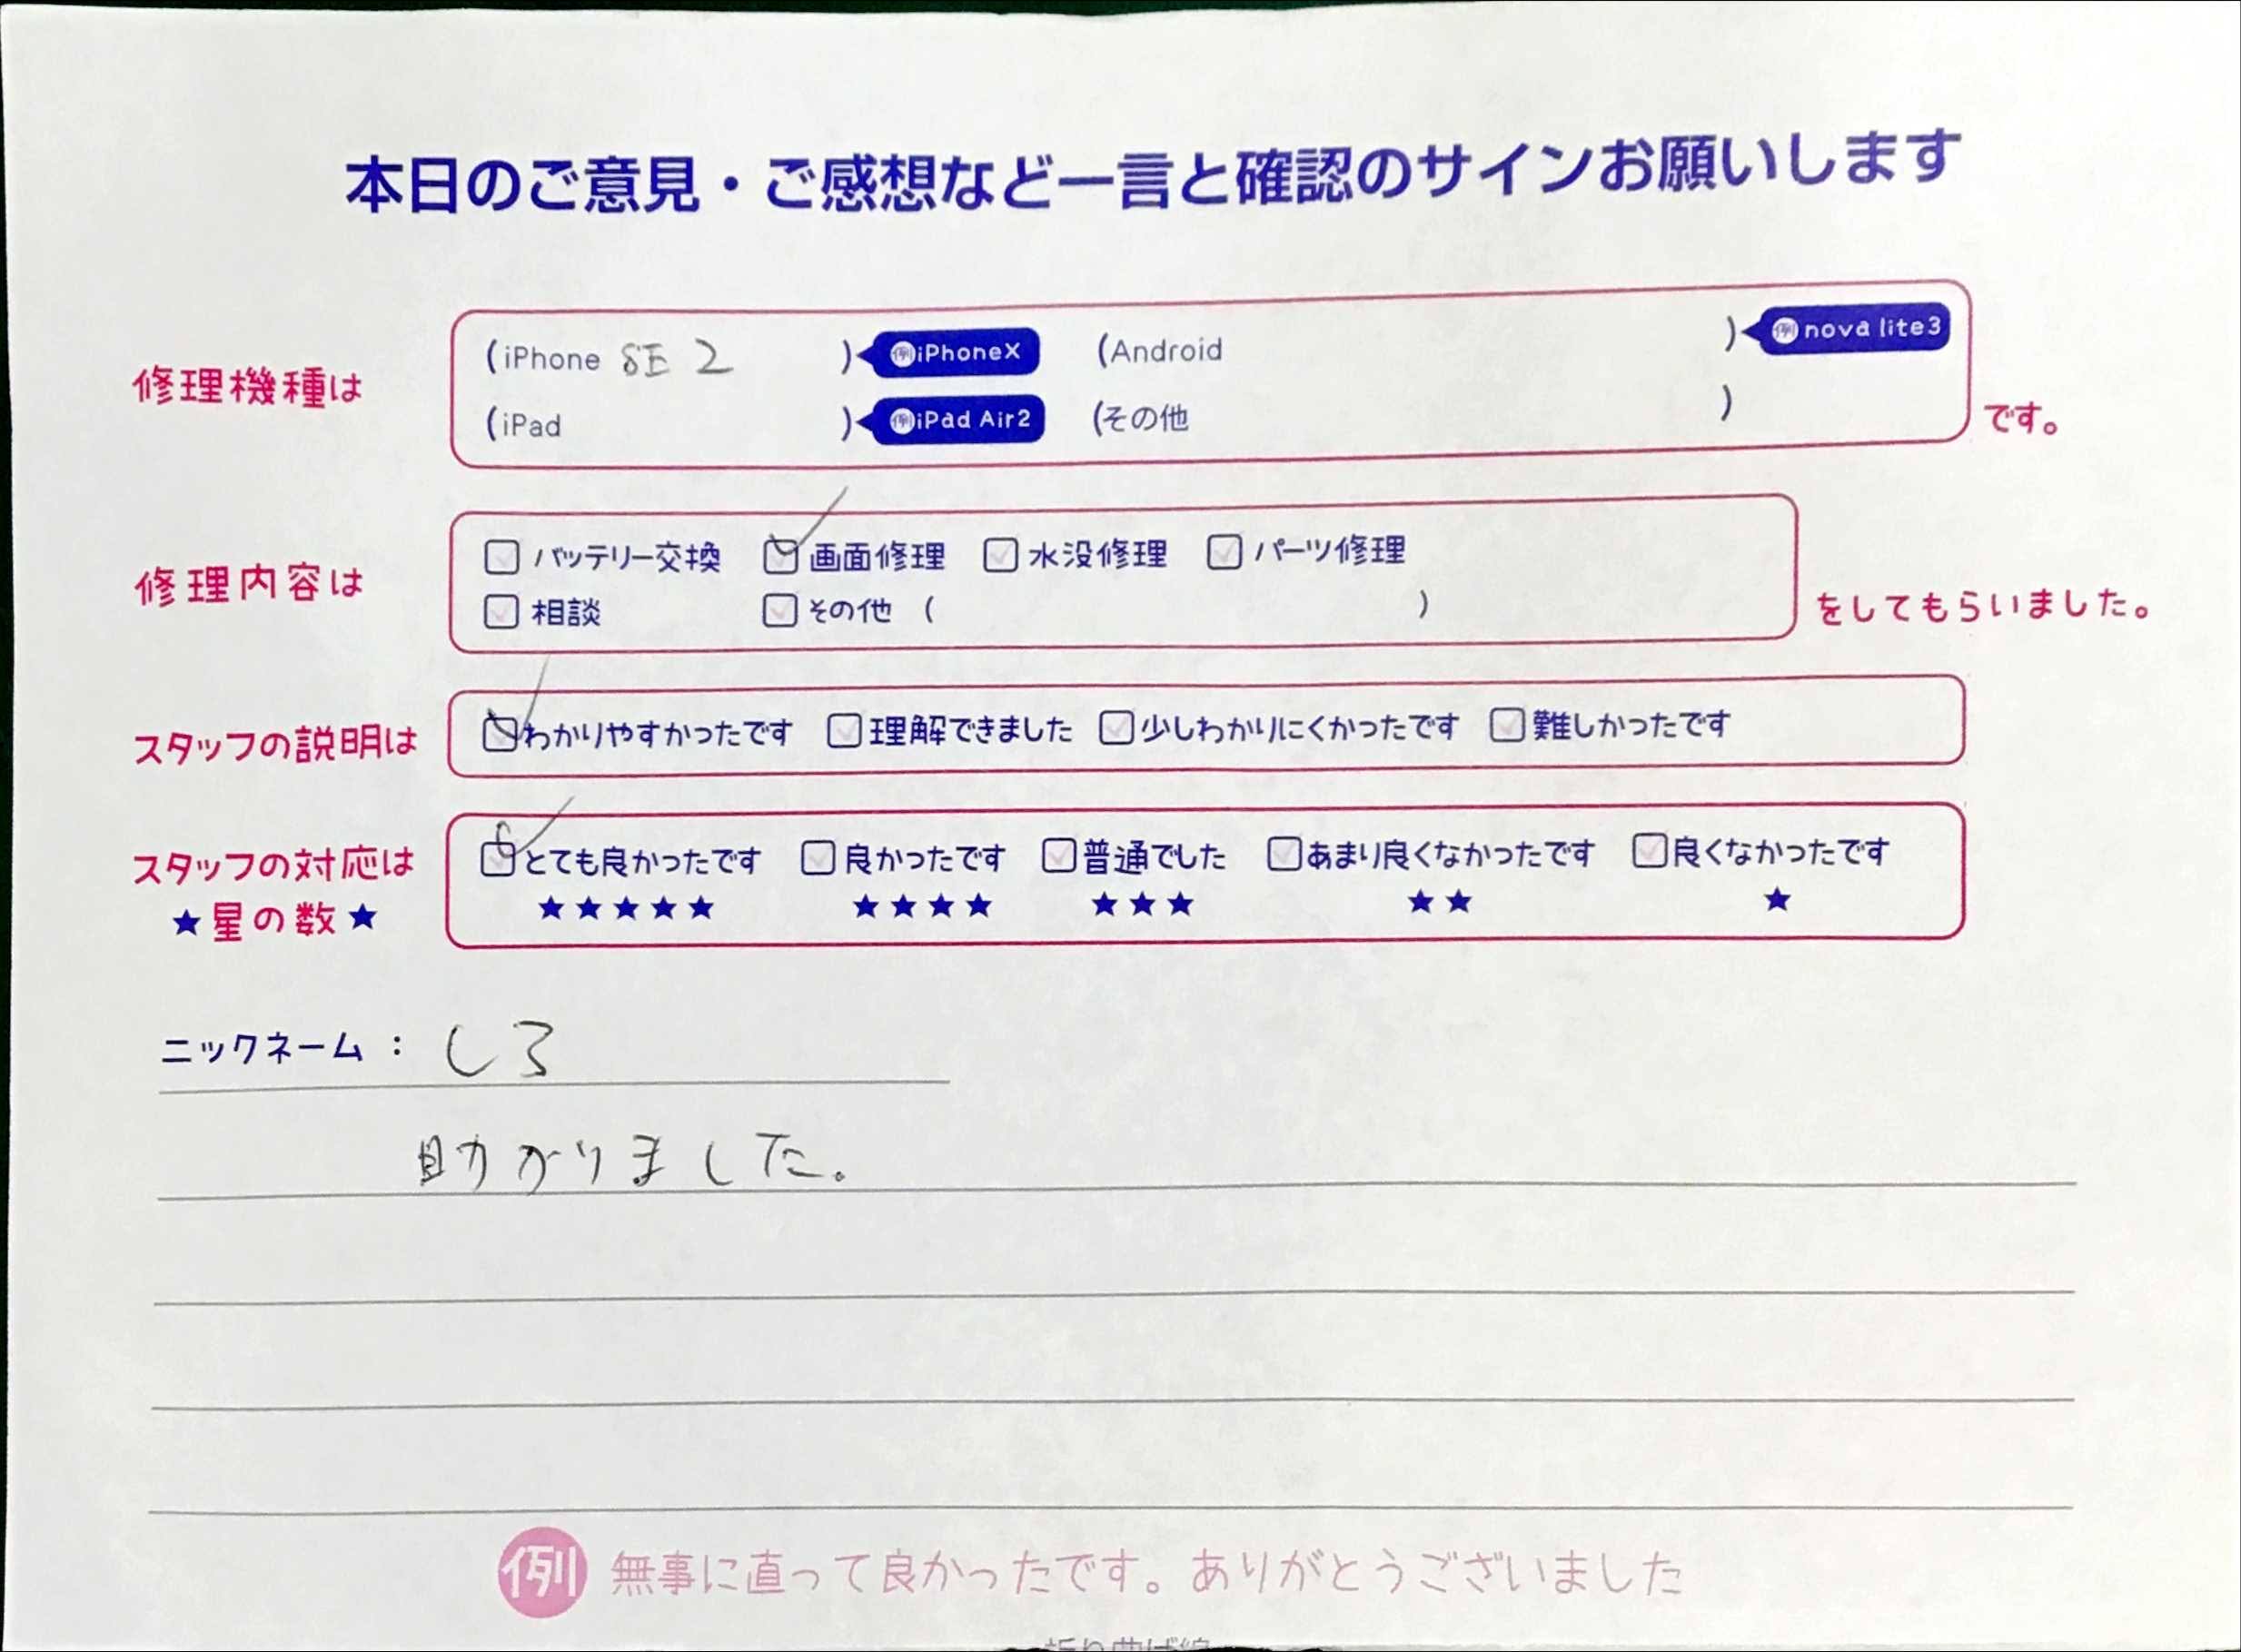 本日のご意見・ご感想など一言と確認のサインお願いします
修理機種は (iPhone SE 2 ) 例iPhoneX (Android ) 例nova lite3
(iPad ) 例iPad Air2 (その他 ) です。
修理内容は バッテリー交換 画面修理 水没修理 パーツ修理
相談 その他 ( ) をしてもらいました。
スタッフの説明は わかりやすかったです 理解できました 少しわかりにくかったです 難しかったです
スタッフの対応は とても良かったです 良かったです 普通でした あまり良くなかったです 良くなかったです
★星の数★ ★★★★★ ★★★★ ★★★ ★★ ★
ニックネーム : しろ
助かりました。
例 無事に直って良かったです。ありがとうございました